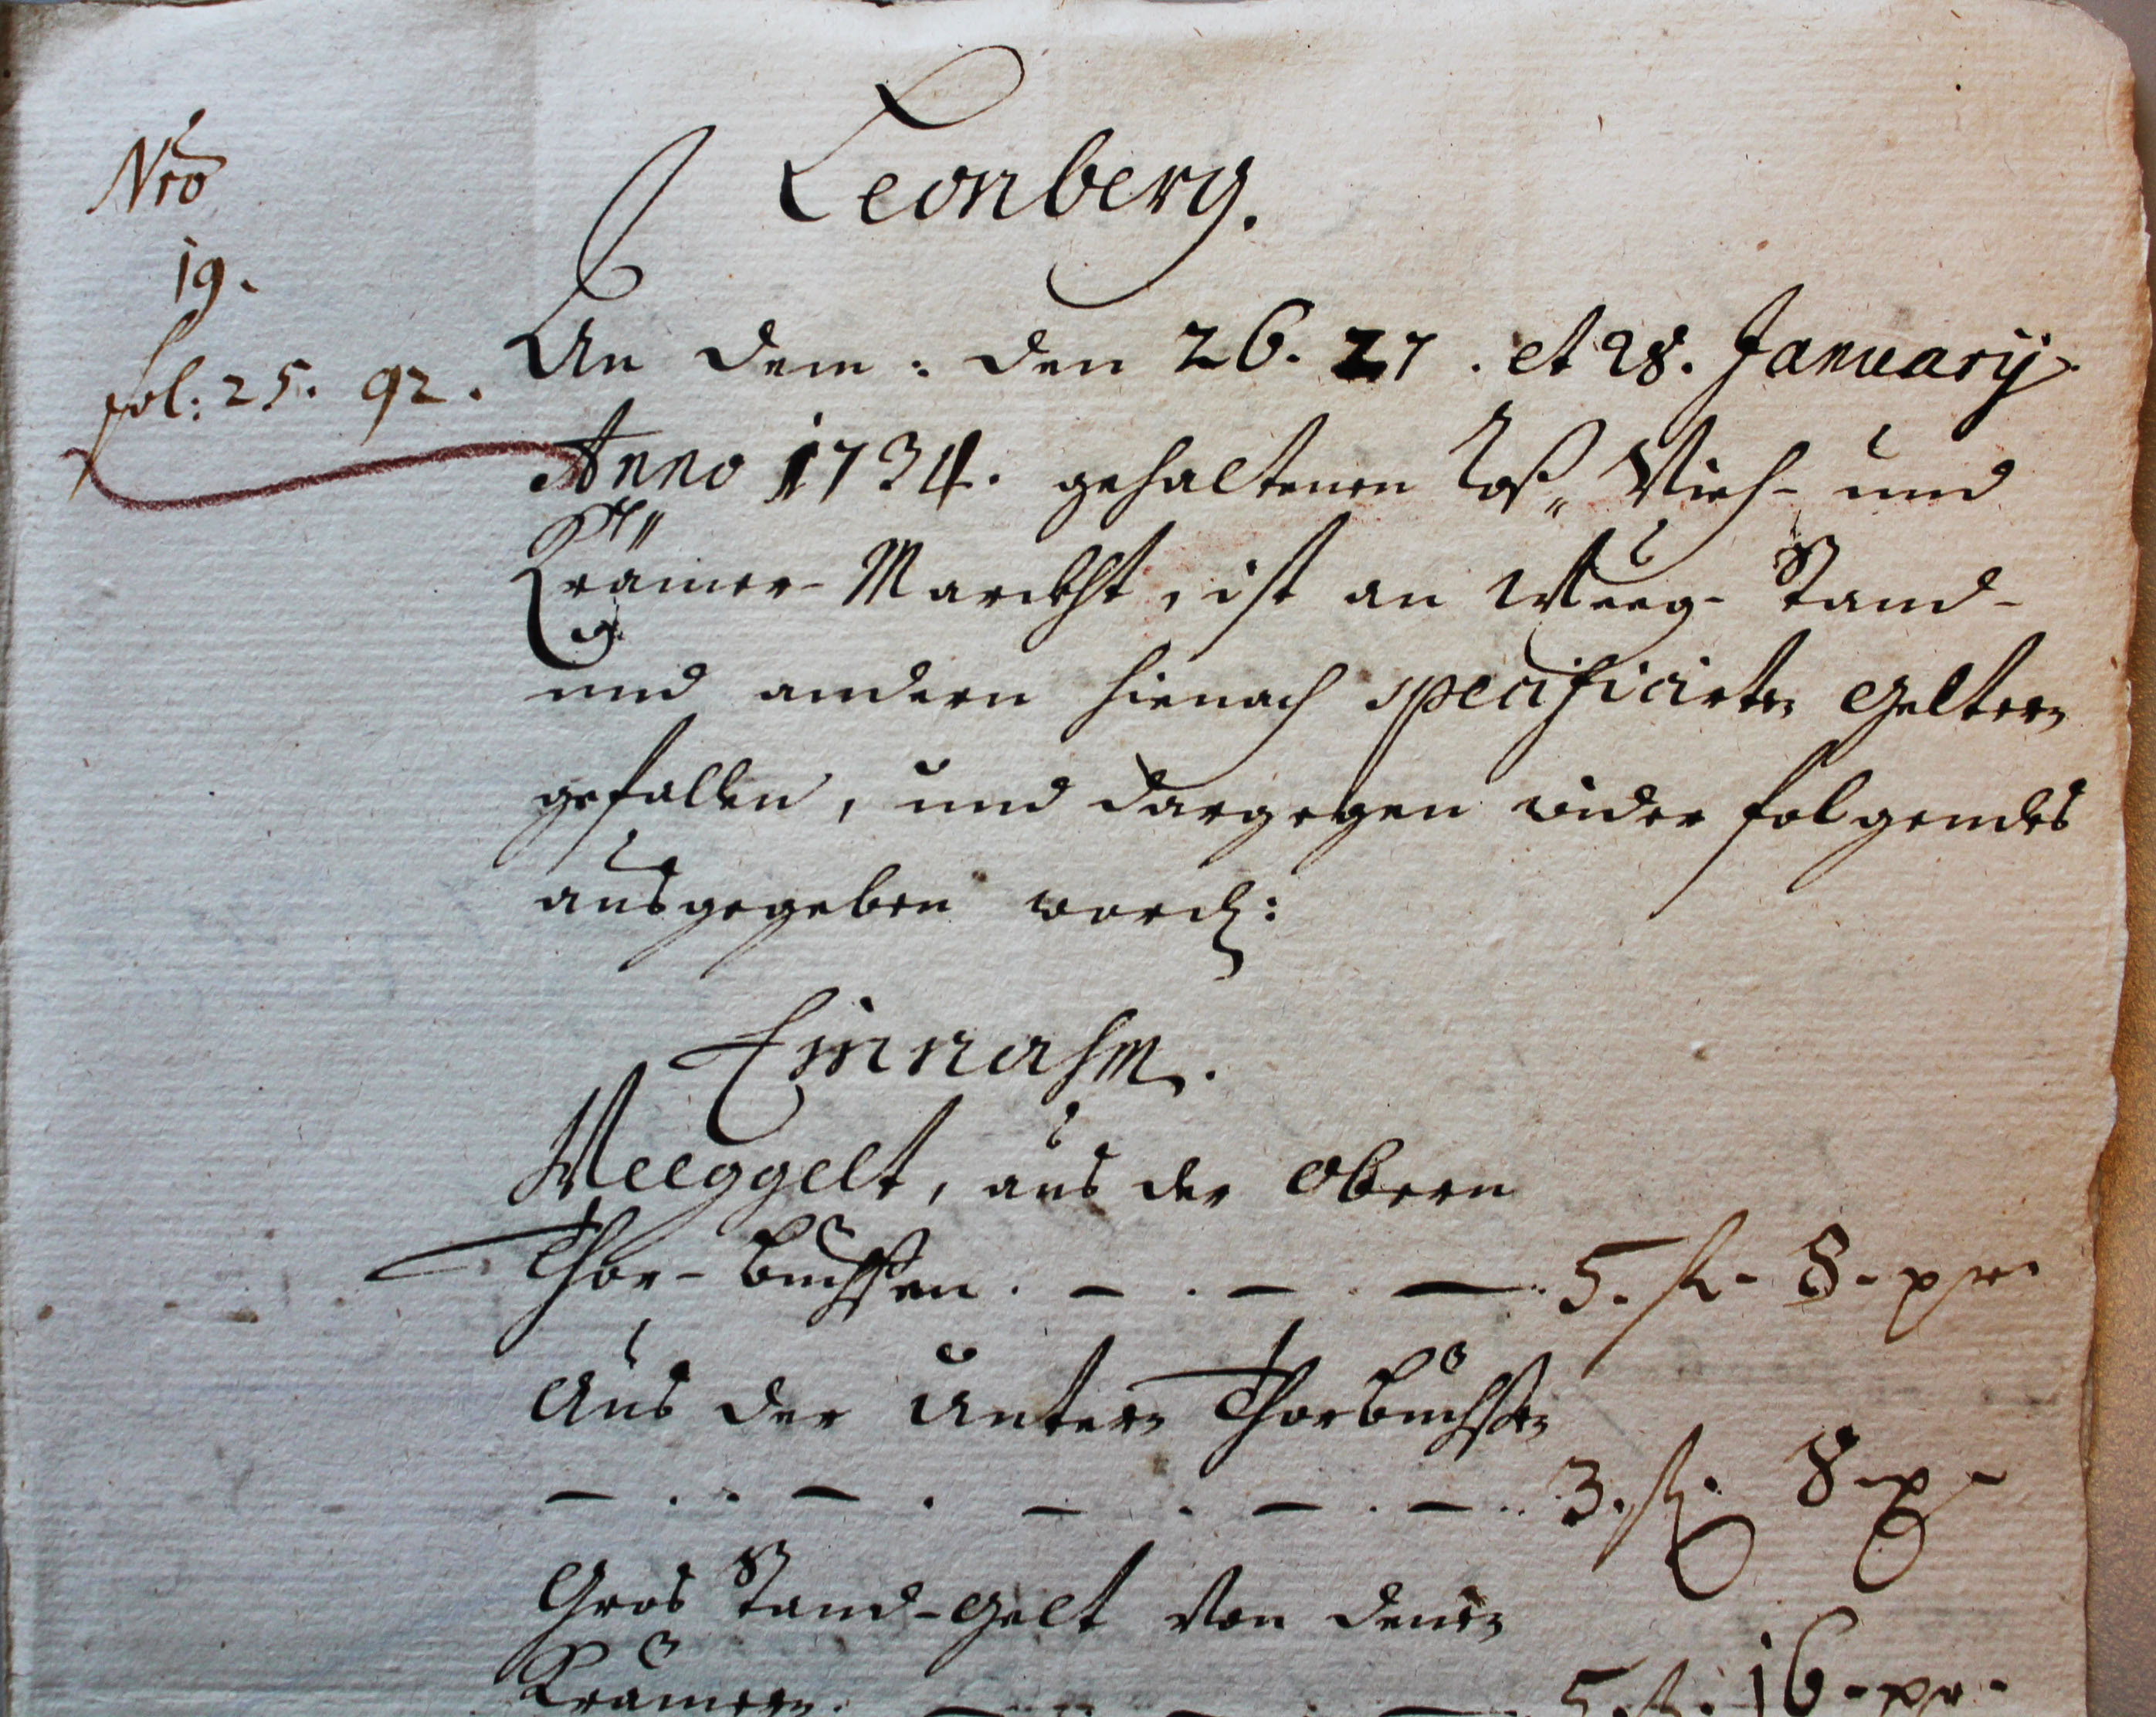 Nro
19.
fol: 25. 92.
Leonberg.
An dem: den 26. 27. et 28. January
Anno 1734. gehaltenen Roß„ Vieh- und
Krämer-Marckht, ist an Weeg- Stand-
und andern hienach specificirten Geltern
gefallen, und dargegen wider folgendes
ausgegeben word:
Einnahm.
Weeggelt, aus der Obern
Thor-büchssen. — . — . — . 5. fl. 8. xr.
Aus der Untern Thorbüchssen
— . . — . — . — . — . . 3. fl. 8. x
Gros Stand-Gelt von denen
Krämern. — — . — 5. fl. 16. xr.